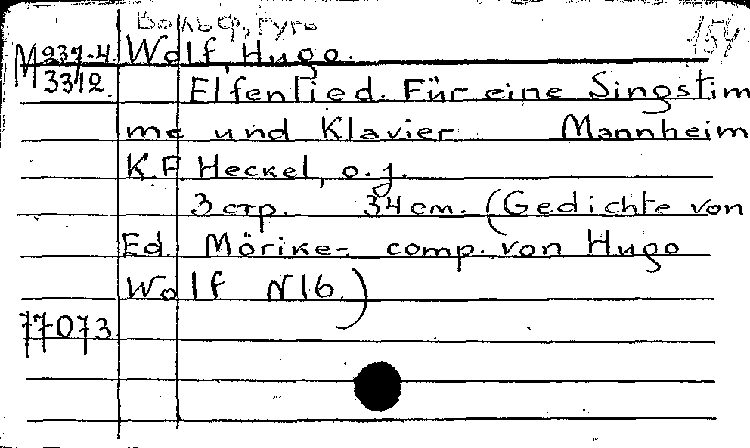 Вольф, Гуго
154
M 237-4 Wolf, Hugo.
3312. Elfenlied. Für eine Singstim
me und Klavier Mannheim
K.F. Heckel, o.j.
3 стр. 34 cm. (Gedichte von
Ed. Mörike- comp. von Hugo
Wolf N16.)
77073